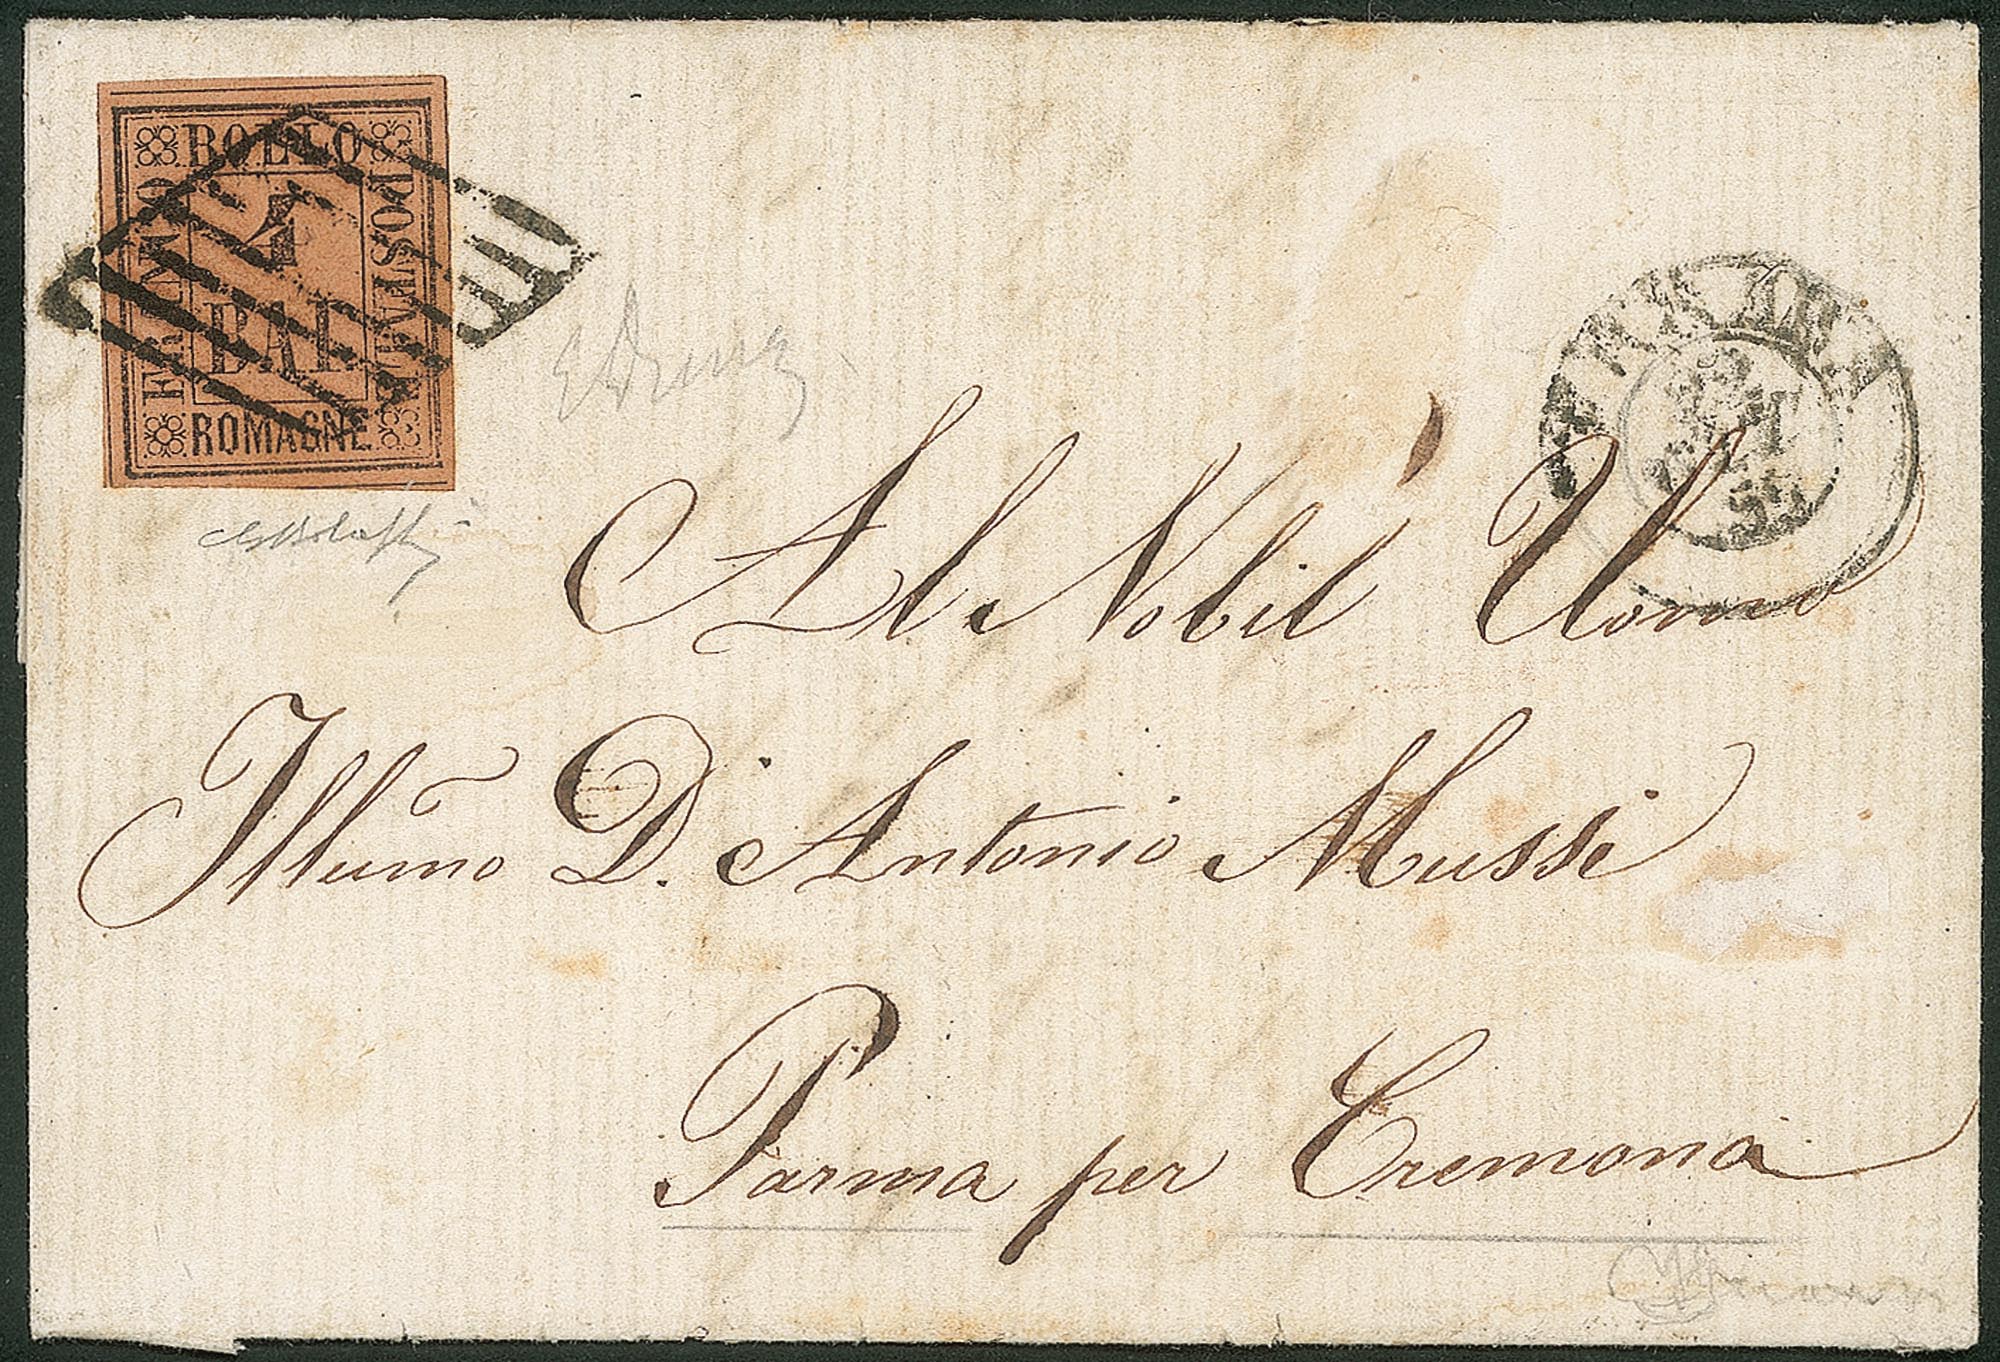 BOLLO
FRANCO
POSTALE
4
BAI
ROMAGNE
FERRARA
22
OTT
59
Al Nobil Uomo
Illumo D. Antonio Mussi
Parma per Cremona